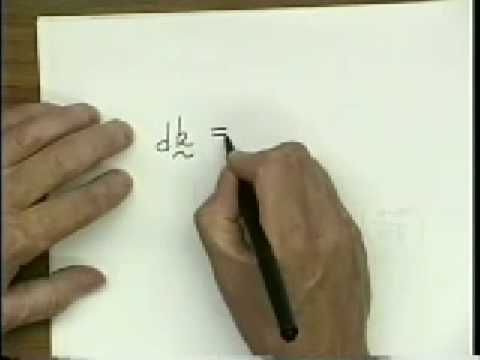 dk̰ =